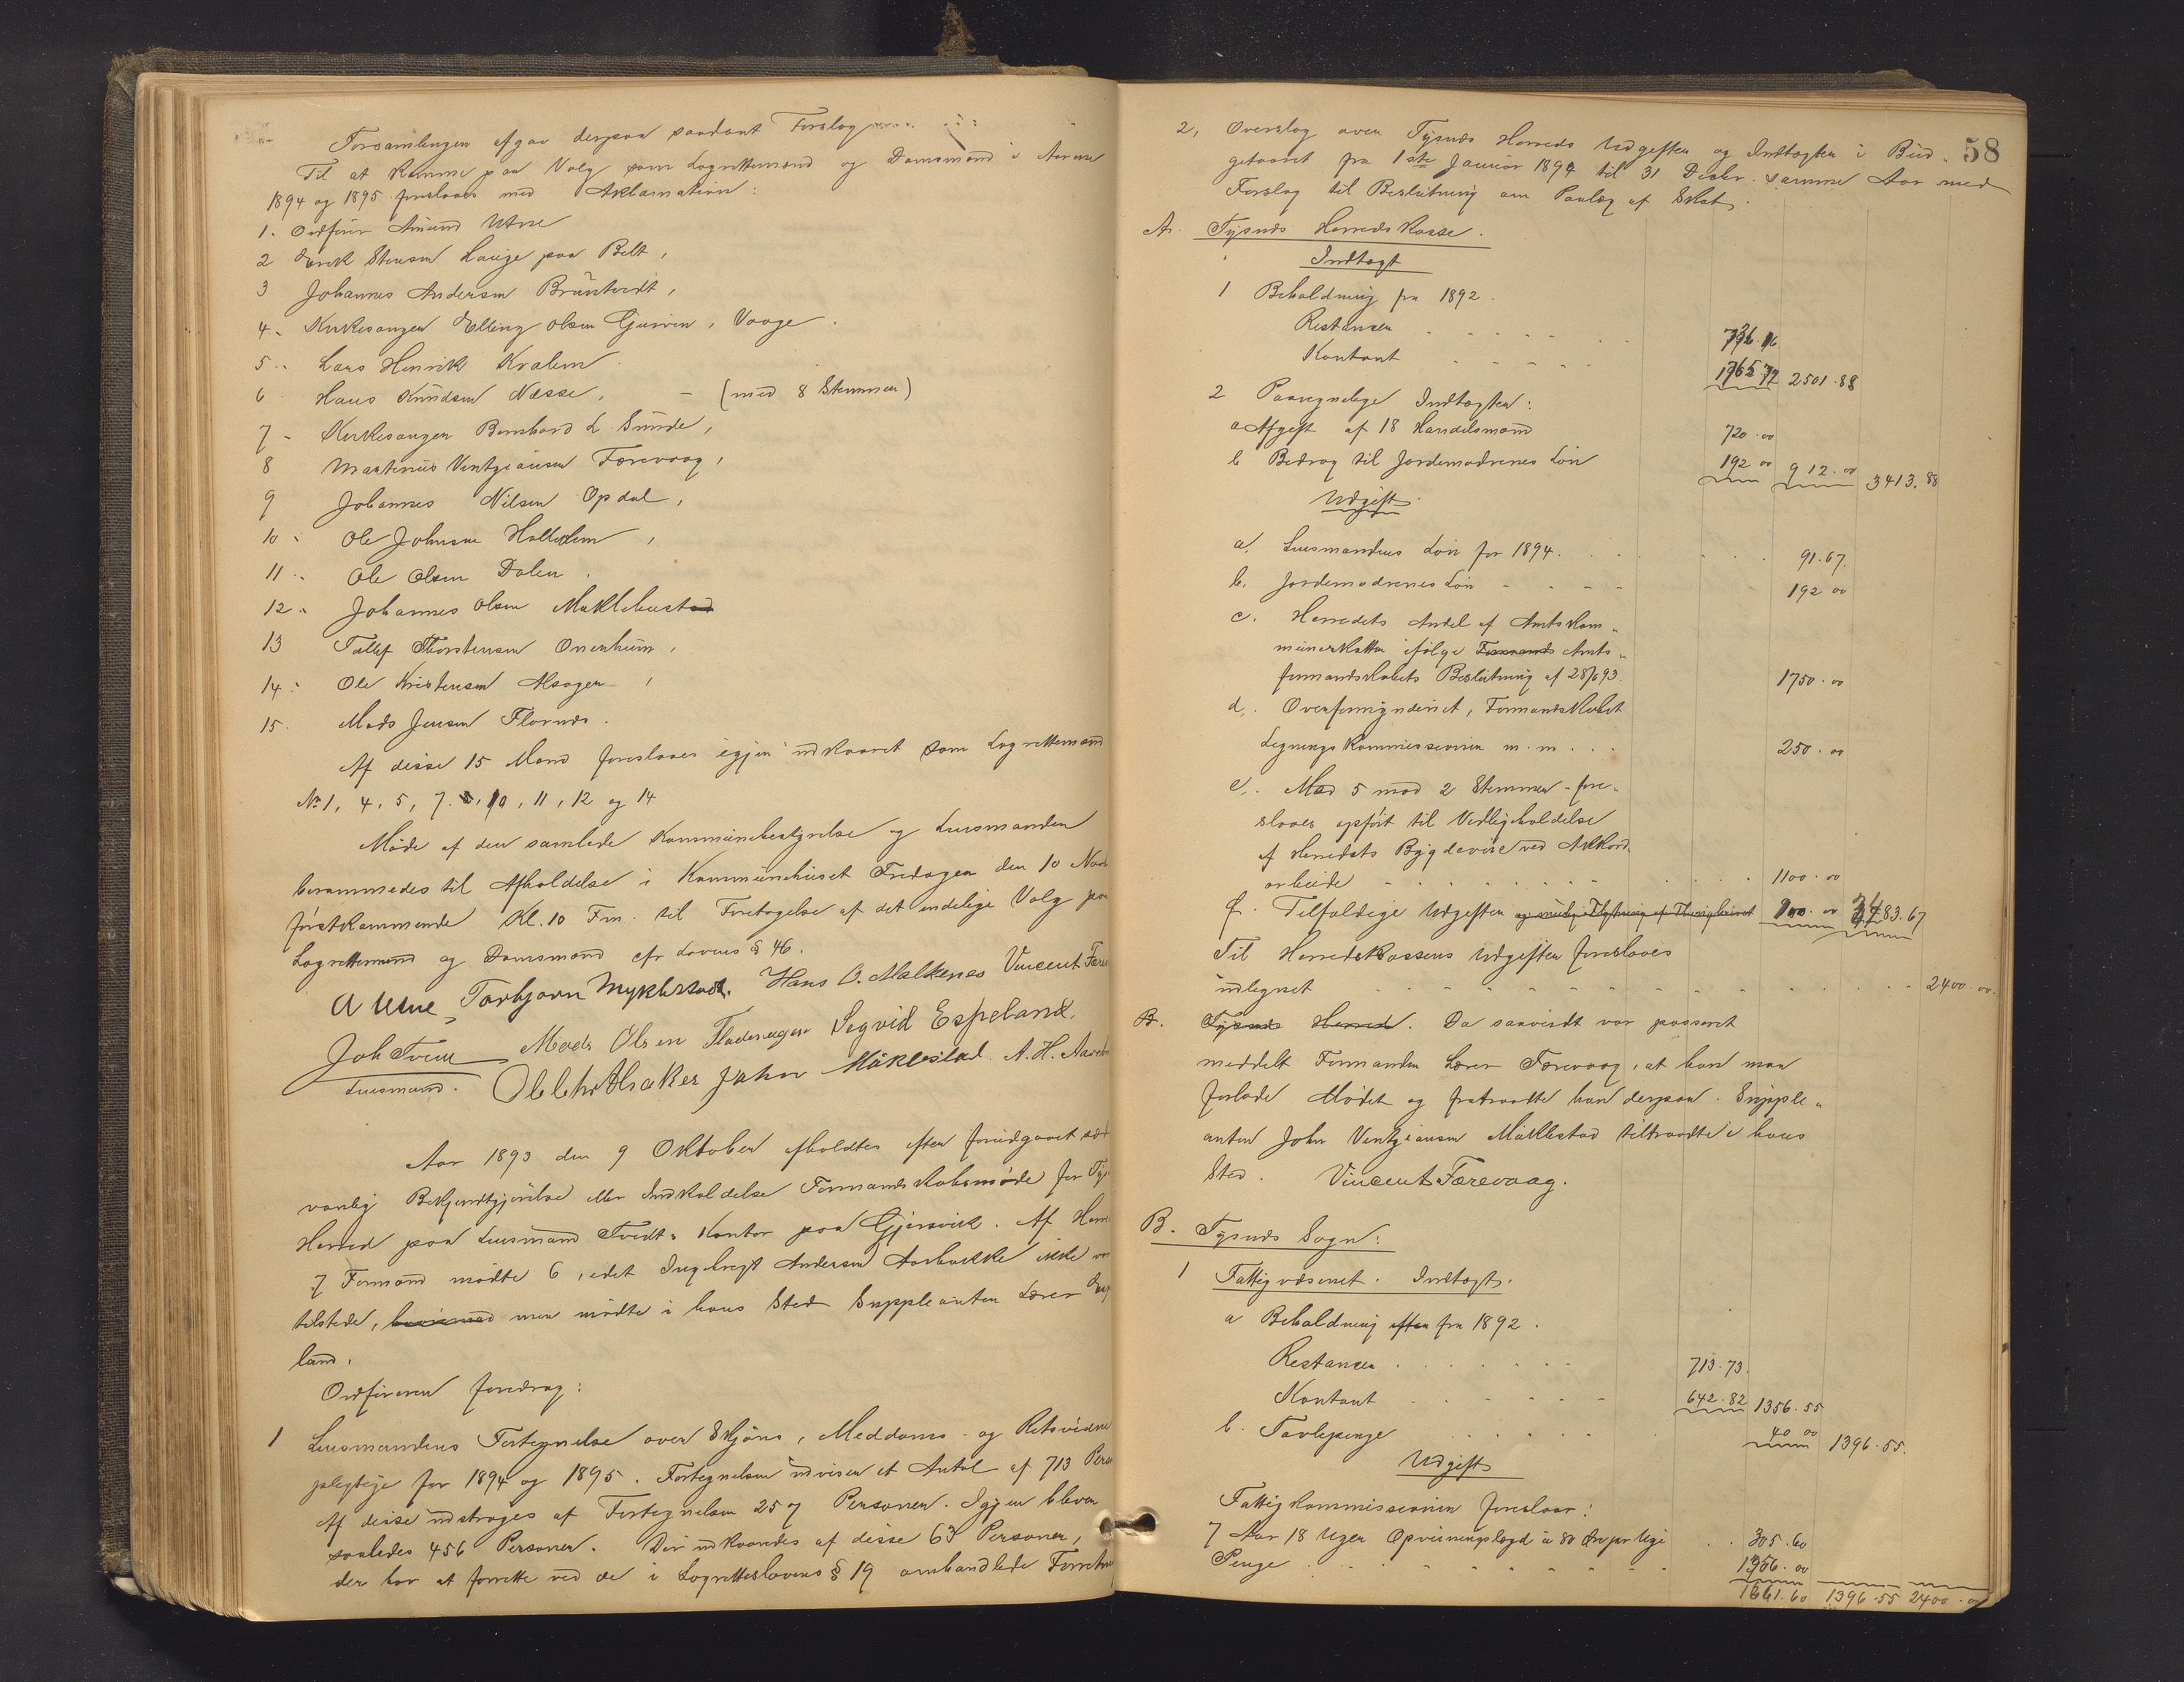 Forsamlingen afgav derpaa saadant Forslag
Til at komme paa Valg som Lagrettemænd og Domsmænd i Aarene
1894 og 1895 foreslaaes med Aklamation:
1. Ordfører Amund Utne
2 Erik Stensen Hauge paa Belt,
3 Johannes Andersen Bruntvedt,
4. Kirkesanger Elling Olsen Gjerven, Vaage.
5. Lars Henrik
6 Hans Knudsen Næsse, - (med 8 Stemmer)
7 - Kirkesanger Bernhard L. Sunde,
8 Martinus Ventziansen Færevaag,
9 Johannes Nilsen Opdal,
10 Ole Johnsen
11 Ole Olsen Dalen
12 Johannes Olsen Møklebust
13 Tollef Thorstensen Onenheim,
14 Ole Kristensen
15. Mads Jensen Flornes.
Af disse 15 Mænd foreslaaes igjen udkaaret som Lagrettemænd
No 1, 4, 5, 7. 8, 10, 11, 12 og 14
Møde af den samlede Kommunebestyrelse og Lensmanden
berammedes til Afholdelse i Kommunehuset Fredagen den 10 Novb
førstkommende Kl. 10 Fm. til Foretagelse af det endelige Valg paa
Lagrettemænd og Domsmænd cfr Lovens § 46.
A Utne, Torbjørn Myklestad. Hans O. Malkenes Vincent Fære
Joh Tveit Mads Olsen Fladenager Segvid Espeland.
Lensmand. Ole Chr John Mäklestad. A. H.
Aar 1893 den 9 Oktober afholdtes efter forudgaaet sæd
vanlig Bekjendtgjørelse eller Indkaldelse Formandskabsmøde for Tys
Herred paa Lensmand Tvedts Kontor paa Gjersvik. Af Herre
7 Formænd mødte 6, idet Ingebrigt Andersen Aarbakke ikke var
tilstede, men mødte i hans Sted Suppleanten Lærer Esp
land.
Ordføreren foredrog:
1 Lensmandens Fortegnelse over Skjøns, Meddoms- og Retsvidne
pligtige for 1894 og 1895. Fortegnelsen udviser et Antal af 713 Pers
Af disse udstroges af Fortegnelsen 257 Personer. Igjen bliver
saaledes 456 Personer. Der udkaaredes af disse 63 Personer,
der har at forrette ved de i Lagretteslovens § 19 omhandlede Forretn
58
2, Overslag over Tysnes Herreds Udgifter og Indtægter i Bud-
getaaret fra 1ste Januar 1894 til 31 Decbr. samme Aar med
Forslag til Beslutning om Paalæg af Skat.
A. Tysnes Herredskasse.
Indtægt
1 Beholdning fra 1892.
Restancer 736.16
Kontant 1765.72 2501.88
2 Paaregnelige Indtægter:
a Afgift af 18 Handelsmænd 720.00
b Bidrag til Jordemødrenes Løn 192 00 912.00 3413.88
Udgift.
a. Lensmandens Løn for 1894. 91.67.
b. Jordemødrenes Løn 192 00
c. Herredets Andel af Amtskom-
muneskatten ifølge Formands Amts-
formandskabets Beslutning af 28/6 93. 1750.00
d. Overformynderiet, Formandskabet
Legningskommissionen m. m. 250.00
e. Med 5 mod 2 Stemmer fore-
slaaes opført til Vedligeholdelse
af Herredets Bygdeveie ved Akkord-
arbeide 1100.00
f. Tilfældige Udgifter 100.00 3483.67
Til Herredskassens Udgifter foreslaaes
udlignet 2400.00.
B. Tysnes Herred. Da saavidt var passeret
meddelt Formanden Lærer Færevaag, at han maa
forlade Mødet og fratraadte han derpaa. Supple-
anten John Ventziansen Mäklestad tiltraadte i hans
Sted. Vincent Færevaag.
B. Tysnes Sogn:
1 Fattigvæsenet. Indtægt.
a Beholdning efter fra 1892.
Restancer 713.73.
Kontant 642.82 1356.55
b. Tavlepenge 40 00 1396.55.
Udgift
Fattigkommissionen foreslaar:
7 Aar 18 Uger Opvisningslægd à 80 Øre pr Uge 305.60
Penge 1356.00
1661.60 1396.55 2400.00